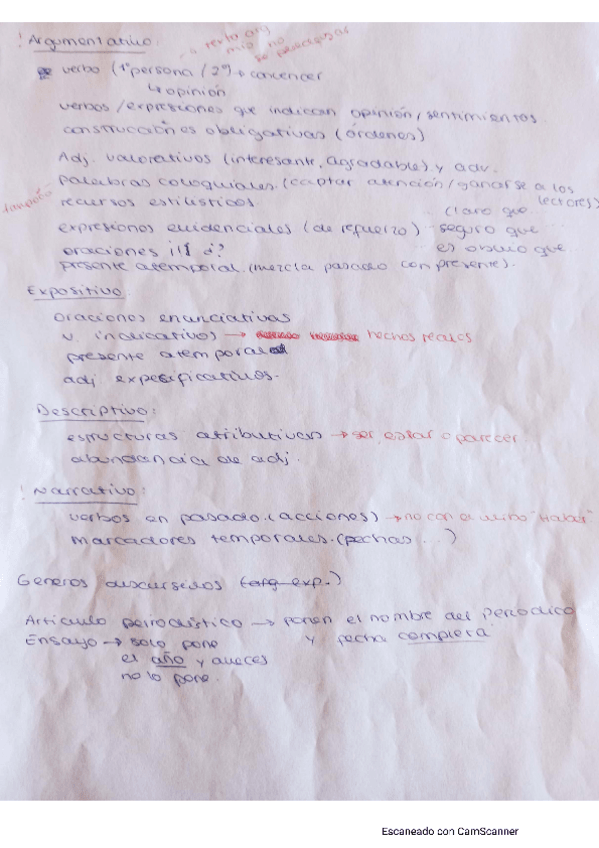 ! Argumentativo.
→ texto arg
mío no
verbo (1ª persona / 2ª) → convencer
↳ opinión
verbos / expresiones que indican opinión / sentimientos.
construcciones obligativas (órdenes)
Adj. valorativos (interesante, agradable) y adv.
palabras coloquiales. (captar atención / ganarse a los
lectores)
recursos estilísticos.
(claro que
expresiones evidenciales (de refuerzo) seguro que
oraciones ¡!! ¿? es obvio que
presente atemporal. (mezcla pasado con presente).
Expositivo
oraciones enunciativas
v. indicativos) → hechos reales
presente atemporal
adj expecificativos.
Descriptivo:
estructuras atributivas → ser, estar o parecer.
abundancia de adj.
! Narrativo:
verbos en pasado. (acciones) → no con el verbo "haber"
Marcadores temporales. (fechas ...)
Generos discursivos (arg-exp.)
Articulo periodístico → ponen el nombre del periodico
Ensayo → solo pone y fecha completa
el año y aveces
no lo pone.
Escaneado con CamScanner